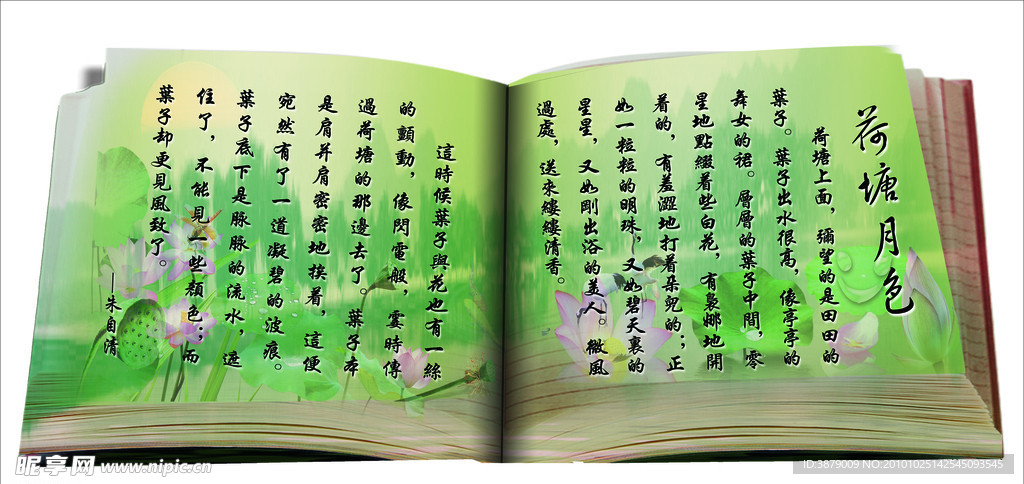 荷塘月色
荷塘上面，彌望的是田田的
葉子。葉子出水很高，像亭亭的
舞女的裙。層層的葉子中間，零
星地點綴着些白花，有裊娜地開
着的，有羞澀地打着朵兒的；正
如一粒粒的明珠，又如碧天裏的
星星，又如剛出浴的美人。微風
過處，送來縷縷清香。
這時候葉子與花也有一絲
的顫動，像閃電般，霎時傳
過荷塘的那邊去了。葉子本
是肩并肩密密地挨着，這便
宛然有了一道凝碧的波痕。
葉子底下是脉脉的流水，遮
住了，不能見一些顏色；而
葉子却更見風致了。
——朱自清
昵享网 www.nipic.cn
ID:3879009 NO:20101025142545093545